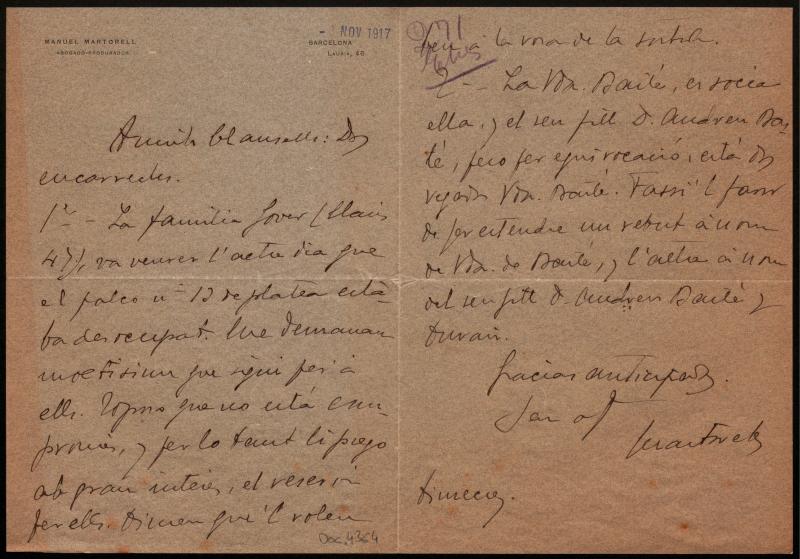 MANUEL MARTORELL
ABOGADO-PROCURADOR
- NOV 1917
BARCELONA
Lauria, 48
encarrechs.
1er - La familia Gover (Claris
47), va veurer l'actre dia que
el palco nº 13 de platea està-
ba desocupat. Me demanan
moltissim que sigui per à
ells. Suposo que no està com-
promès, y per lo tant li prego
ab gran interès, el reservi
per ells. Dimen que'l volen
Doc. 4364
ben à la vora de la sortida.
2 - La Vda. Baité, es socia
ella, y el seu fill D. Andreu Bai-
té, pero per equivocació, està dos
vegadas Vda. Baité. Fassi'l favor
de fer estendre un rebut à nom
de Vda. de Baité, y l'altre à nom
del seu fill D. Andreu Baité y
Duran.
Gracias anticipadas.
Martorell
Dimecres.